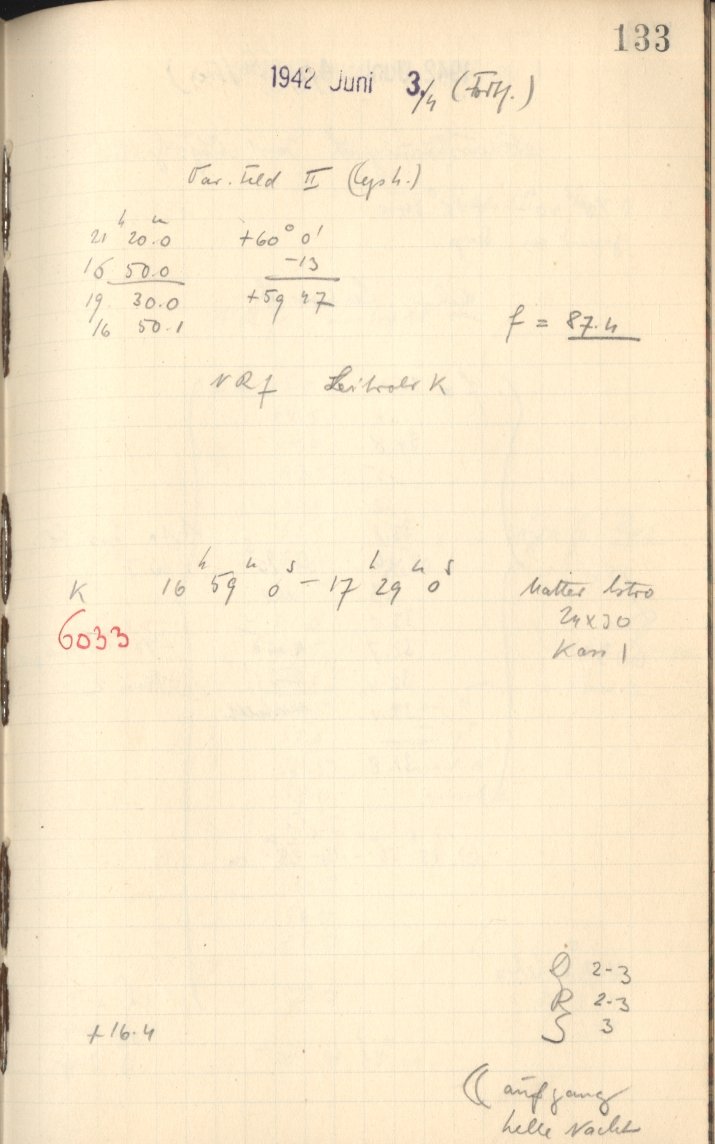 133
1942 Juni 3/4 (Forts.)
Var. Feld II (Ceph.)
21 h 20.0 m +60° 0'
16 50.0 -13
19 30.0 +59 47
16 50.1
f = 87.4
NRf Leitrohr K
K 16 h 59 m 0 s - 17 h 29 m 0 s
6033
Matter Astro
24x30
Kass 1
Q 2-3
R 2-3
S 3
+16.4
(( aufgang
helle Nacht